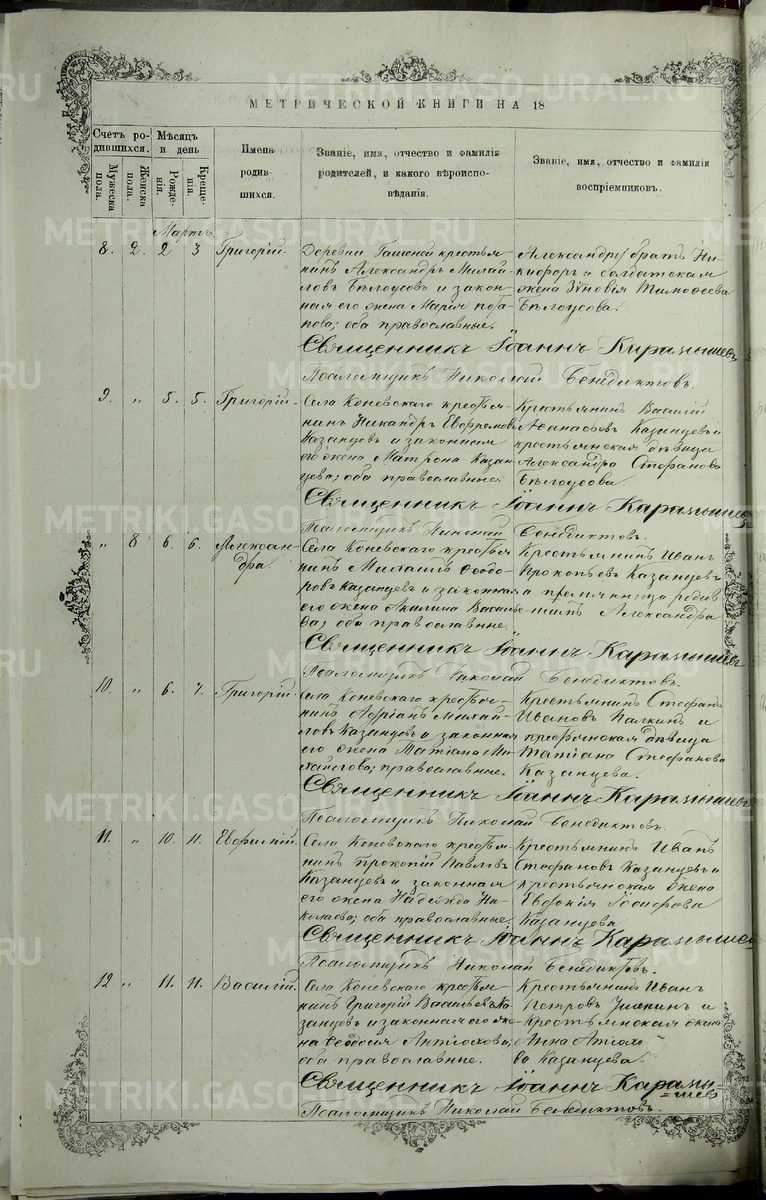 МЕТРИЧЕСКОЙ КНИГИ НА 18
Счетъ ро-
дившихся.
Мѣсяцъ
и день
Имена
родив-
шихся.
Званіе, имя, отчество и фамилія
родителей, и какого вѣроиспо-
вѣданія.
Званіе, имя, отчество и фамилія
воспріемниковъ.
Мужеска
пола.
Женска
пола.
Рожде-
нія.
Креще-
нія.
Мартъ
8. 2. 2 3 Григорій.
Деревни крестья-
нинъ Александръ Михай-
ловъ Бѣлоусовъ и закон-
ная его жена Марія
оба православные.
Александръ братъ Ни-
кифоръ и солдатская
жена Зиновія Тимофеева
Бѣлоусова.
Священникъ Іоаннъ Карамышевъ
Псаломщикъ Николай Бенедиктовъ.
9. „ 5. 5. Григорій.
Села Коневскаго крестья-
нинъ Никандръ Евфремовъ
Казанцевъ и законная
его жена Матрона Казан-
цева; оба православные.
Крестьянинъ Василій
Аѳанасовъ Казанцевъ и
крестьянская дѣвица
Александра Стефанова
Бѣлоусова.
Священникъ Іоаннъ Карамышевъ
Псаломщикъ Николай Бенедиктовъ.
„ 8 6. 6. Алексан-
дра.
Села Коневскаго крестья-
нинъ Михаилъ Ѳеодо-
ровъ Казанцевъ и законная
его жена Акилина Василье-
ва; оба православные.
Крестьянинъ Иванъ
Прокопьевъ Казанцевъ
Александра
Священникъ Іоаннъ Карамышевъ
Псаломщикъ Николай Бенедиктовъ.
10. „ 6. 7. Григорій.
Села Коневскаго крестья-
нинъ Адріанъ Михай-
ловъ Казанцевъ и законная
его жена Татіана Ми-
хайлова; православные.
Крестьянинъ Стефанъ
Ивановъ Палкинъ и
крестьянская дѣвица
Татіана Стефанова
Казанцева.
Священникъ Іоаннъ Карамышевъ
Псаломщикъ Николай Бенедиктовъ.
11. „ 10. 11. Евфимій.
Села Коневскаго крестья-
нинъ Прокопій Павловъ
Казанцевъ и законная
его жена Надежда Ни-
колаева; оба православные.
Крестьянинъ Иванъ
Стефановъ Казанцевъ и
крестьянская жена
Евдокія Іосифова
Казанцева
Священникъ Іоаннъ Карамышевъ
Псаломщикъ Николай Бенедиктовъ.
12 „ 11. 11. Василій.
Села Коневскаго крестья-
нинъ Григорій Васильевъ Ка-
занцевъ и законная его же-
на Ѳеодосія Антіохова;
оба православные.
Крестьянинъ Иванъ
Петровъ и
крестьянская жена
Анна Антіохо
ва Казанцева.
Священникъ Іоаннъ Карамы-
=шевъ
Псаломщикъ Николай Бенедиктовъ.
METRIKI.GASO-URAL.RU